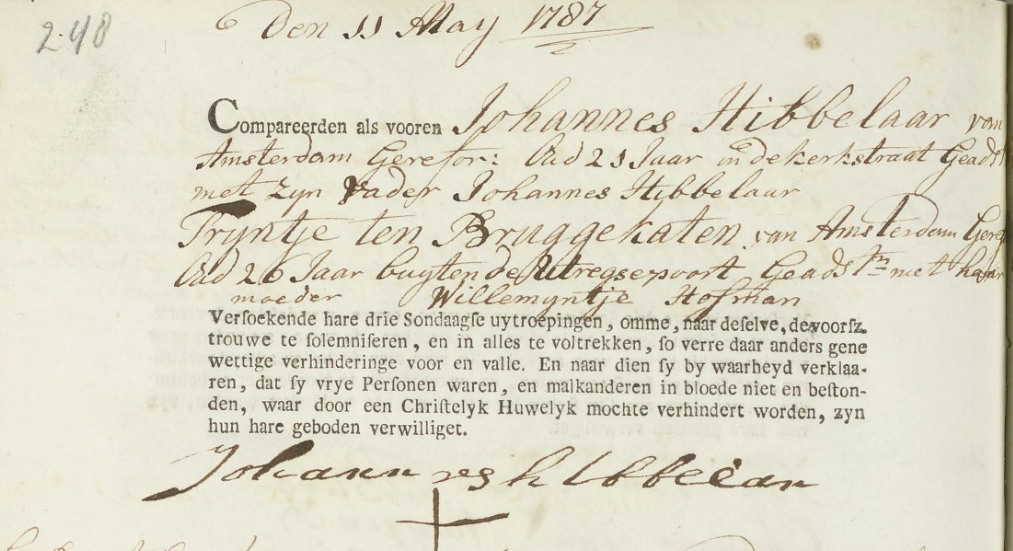 248
Den 11 May 1787
Compareerden als vooren Johannes Hibbelaar van
Amsterdam Gerefor: Oud 21 Jaar in de kerkstraat Geadst
met zyn Vader Johannes Hibbelaar
Tryntje ten Bruggekaten van Amsterdam Geref
Oud 26 Jaar buyten de Utregsepoort Geadstm met haar
moeder Willemyntje Hofman
Versoekende hare drie Sondaagse uytroepingen, omme, naar deselve, de voorsz.
trouwe te solemniseren, en in alles te voltrekken, so verre daar anders gene
wettige verhinderinge voor en valle. En naar dien sy by waarheyd verklaa-
ren, dat sy vrye Personen waren, en malkanderen in bloede niet en beston-
den, waar door een Christelyk Huwelyk mochte verhindert worden, zyn
hun hare geboden verwilliget.
Johannes hibbelaar